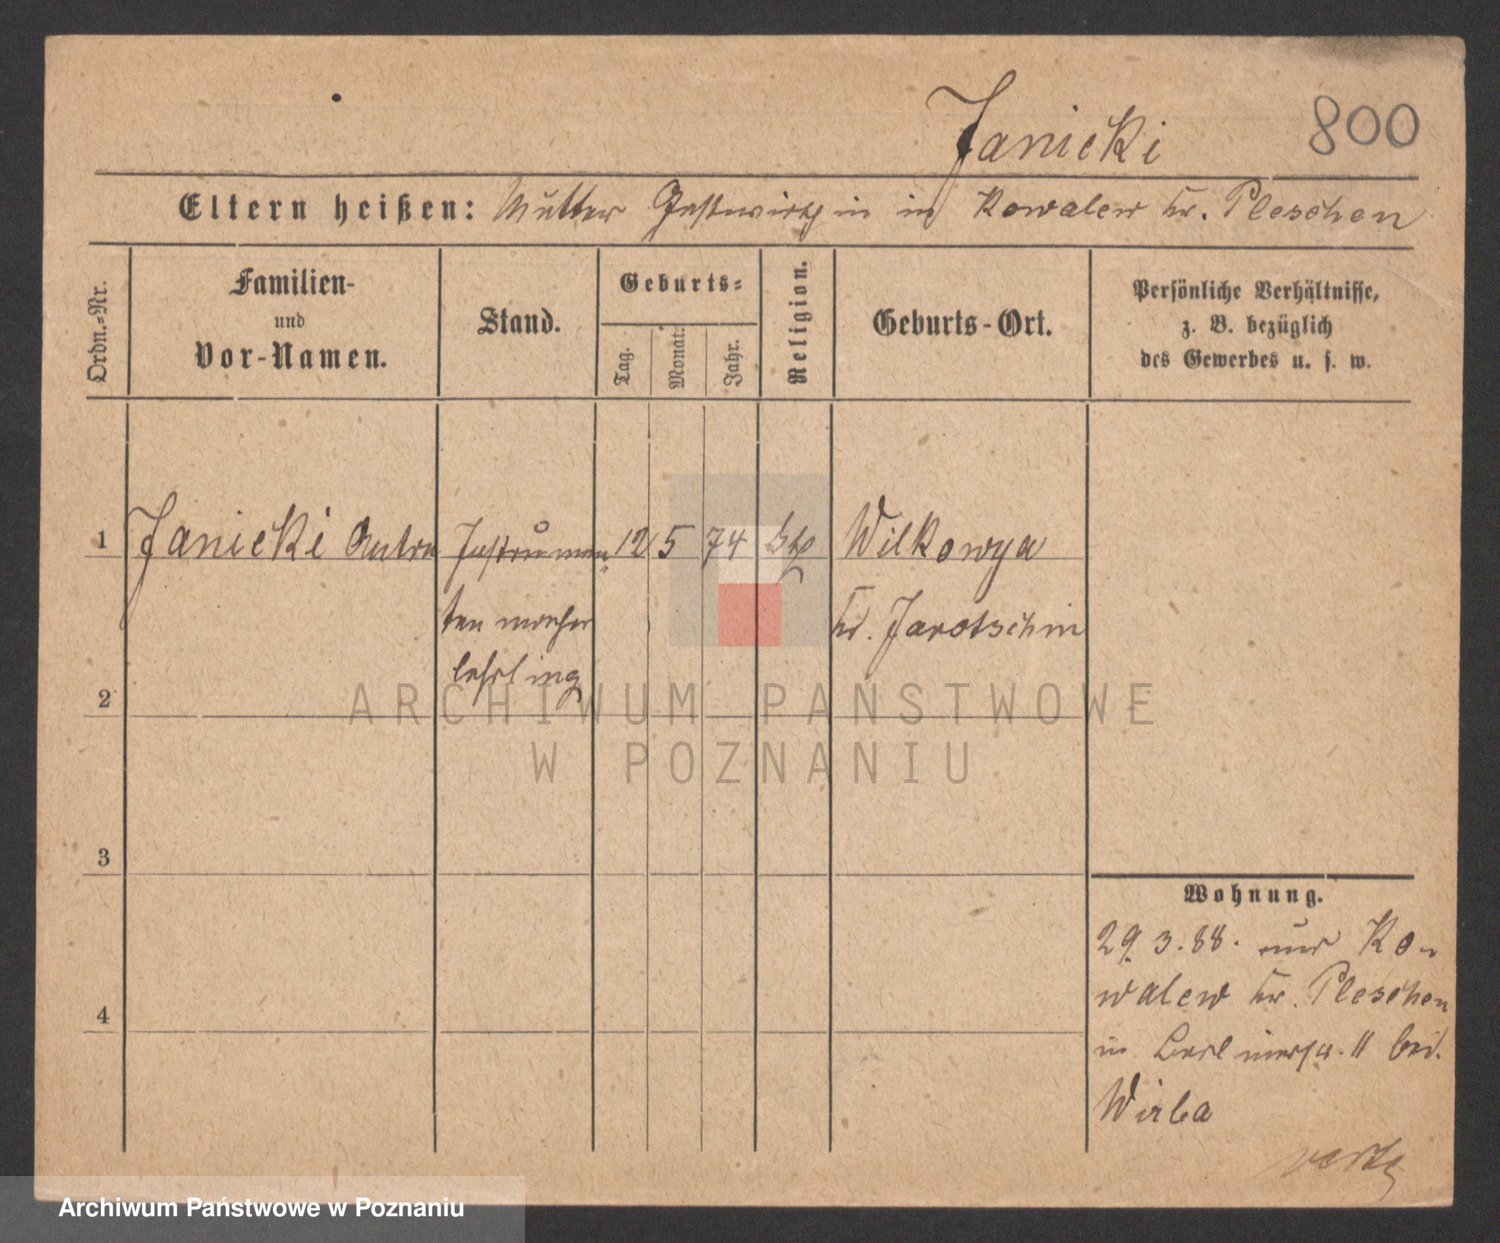 Janicki 800
Eltern heißen: Mutter Gastwirthin in Kowalew Kr. Pleschen
Ordn.-Nr.
Familien-
und
Vor-Namen.
Stand.
Geburts-
Tag.
Monat.
Jahr.
Religion.
Geburts-Ort.
Persönliche Verhältnisse,
z. B. bezüglich
des Gewerbes u. s. w.
1 Janicki Anton Instrumen 12 5 74 kth Wilkowya
ten macher Kr. Jarotschin
lehrling
2
3
4
Wohnung.
29.3.88. aus Ko-
walew Kr. Pleschen
in Berlinerstr. 11 bei
Wirba
ARCHIWUM PAŃSTWOWE
W POZNANIU
Archiwum Państwowe w Poznaniu